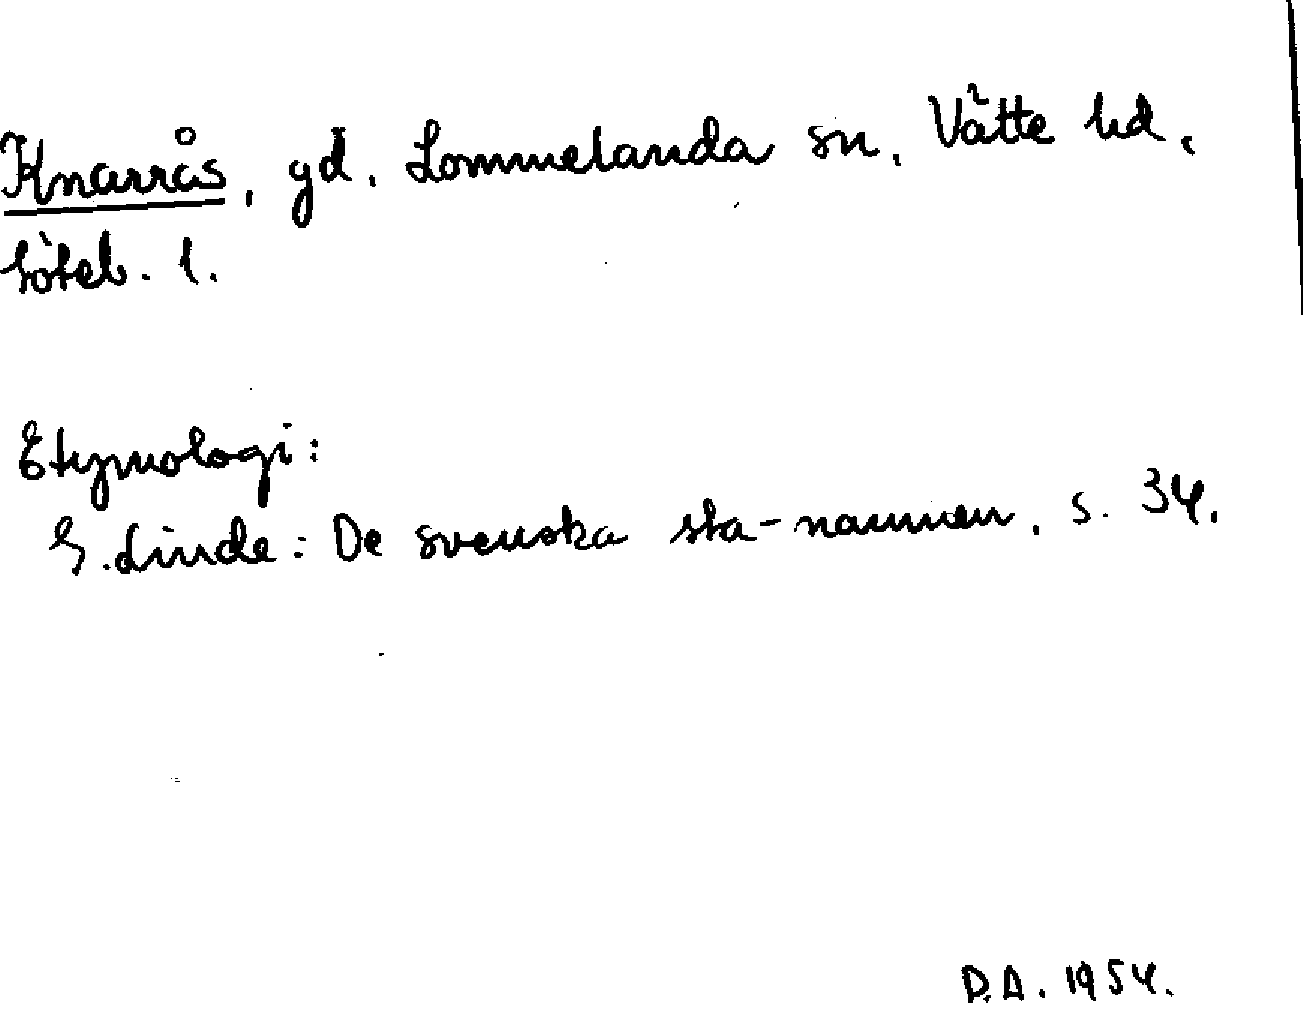 Knarrås, gd, Lommelanda sn, Vätte hd,
Göteb. l.
Etymologi:
G. Linde: De svenska sta-namnen, s. 34.
D.A. 1954.